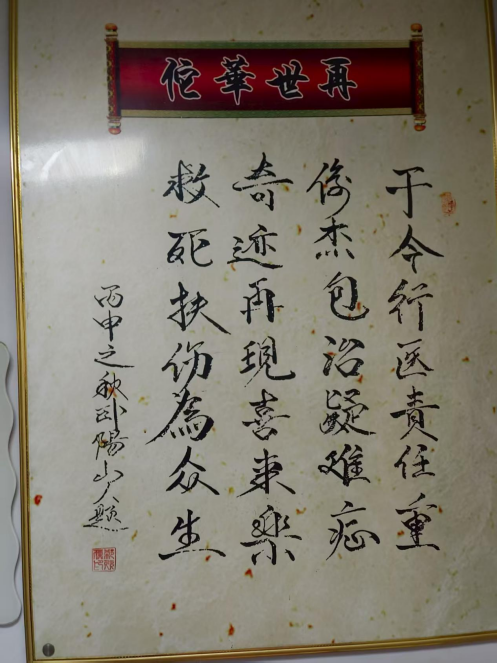 再世華佗
于今行医责任重
俊杰包治疑难症
奇迹再現喜来樂
救死扶伤為众生
丙申之秋卧陽山人题